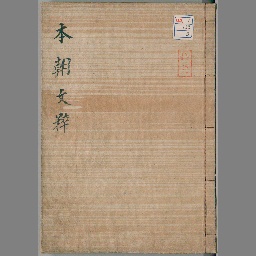 本朝文粹